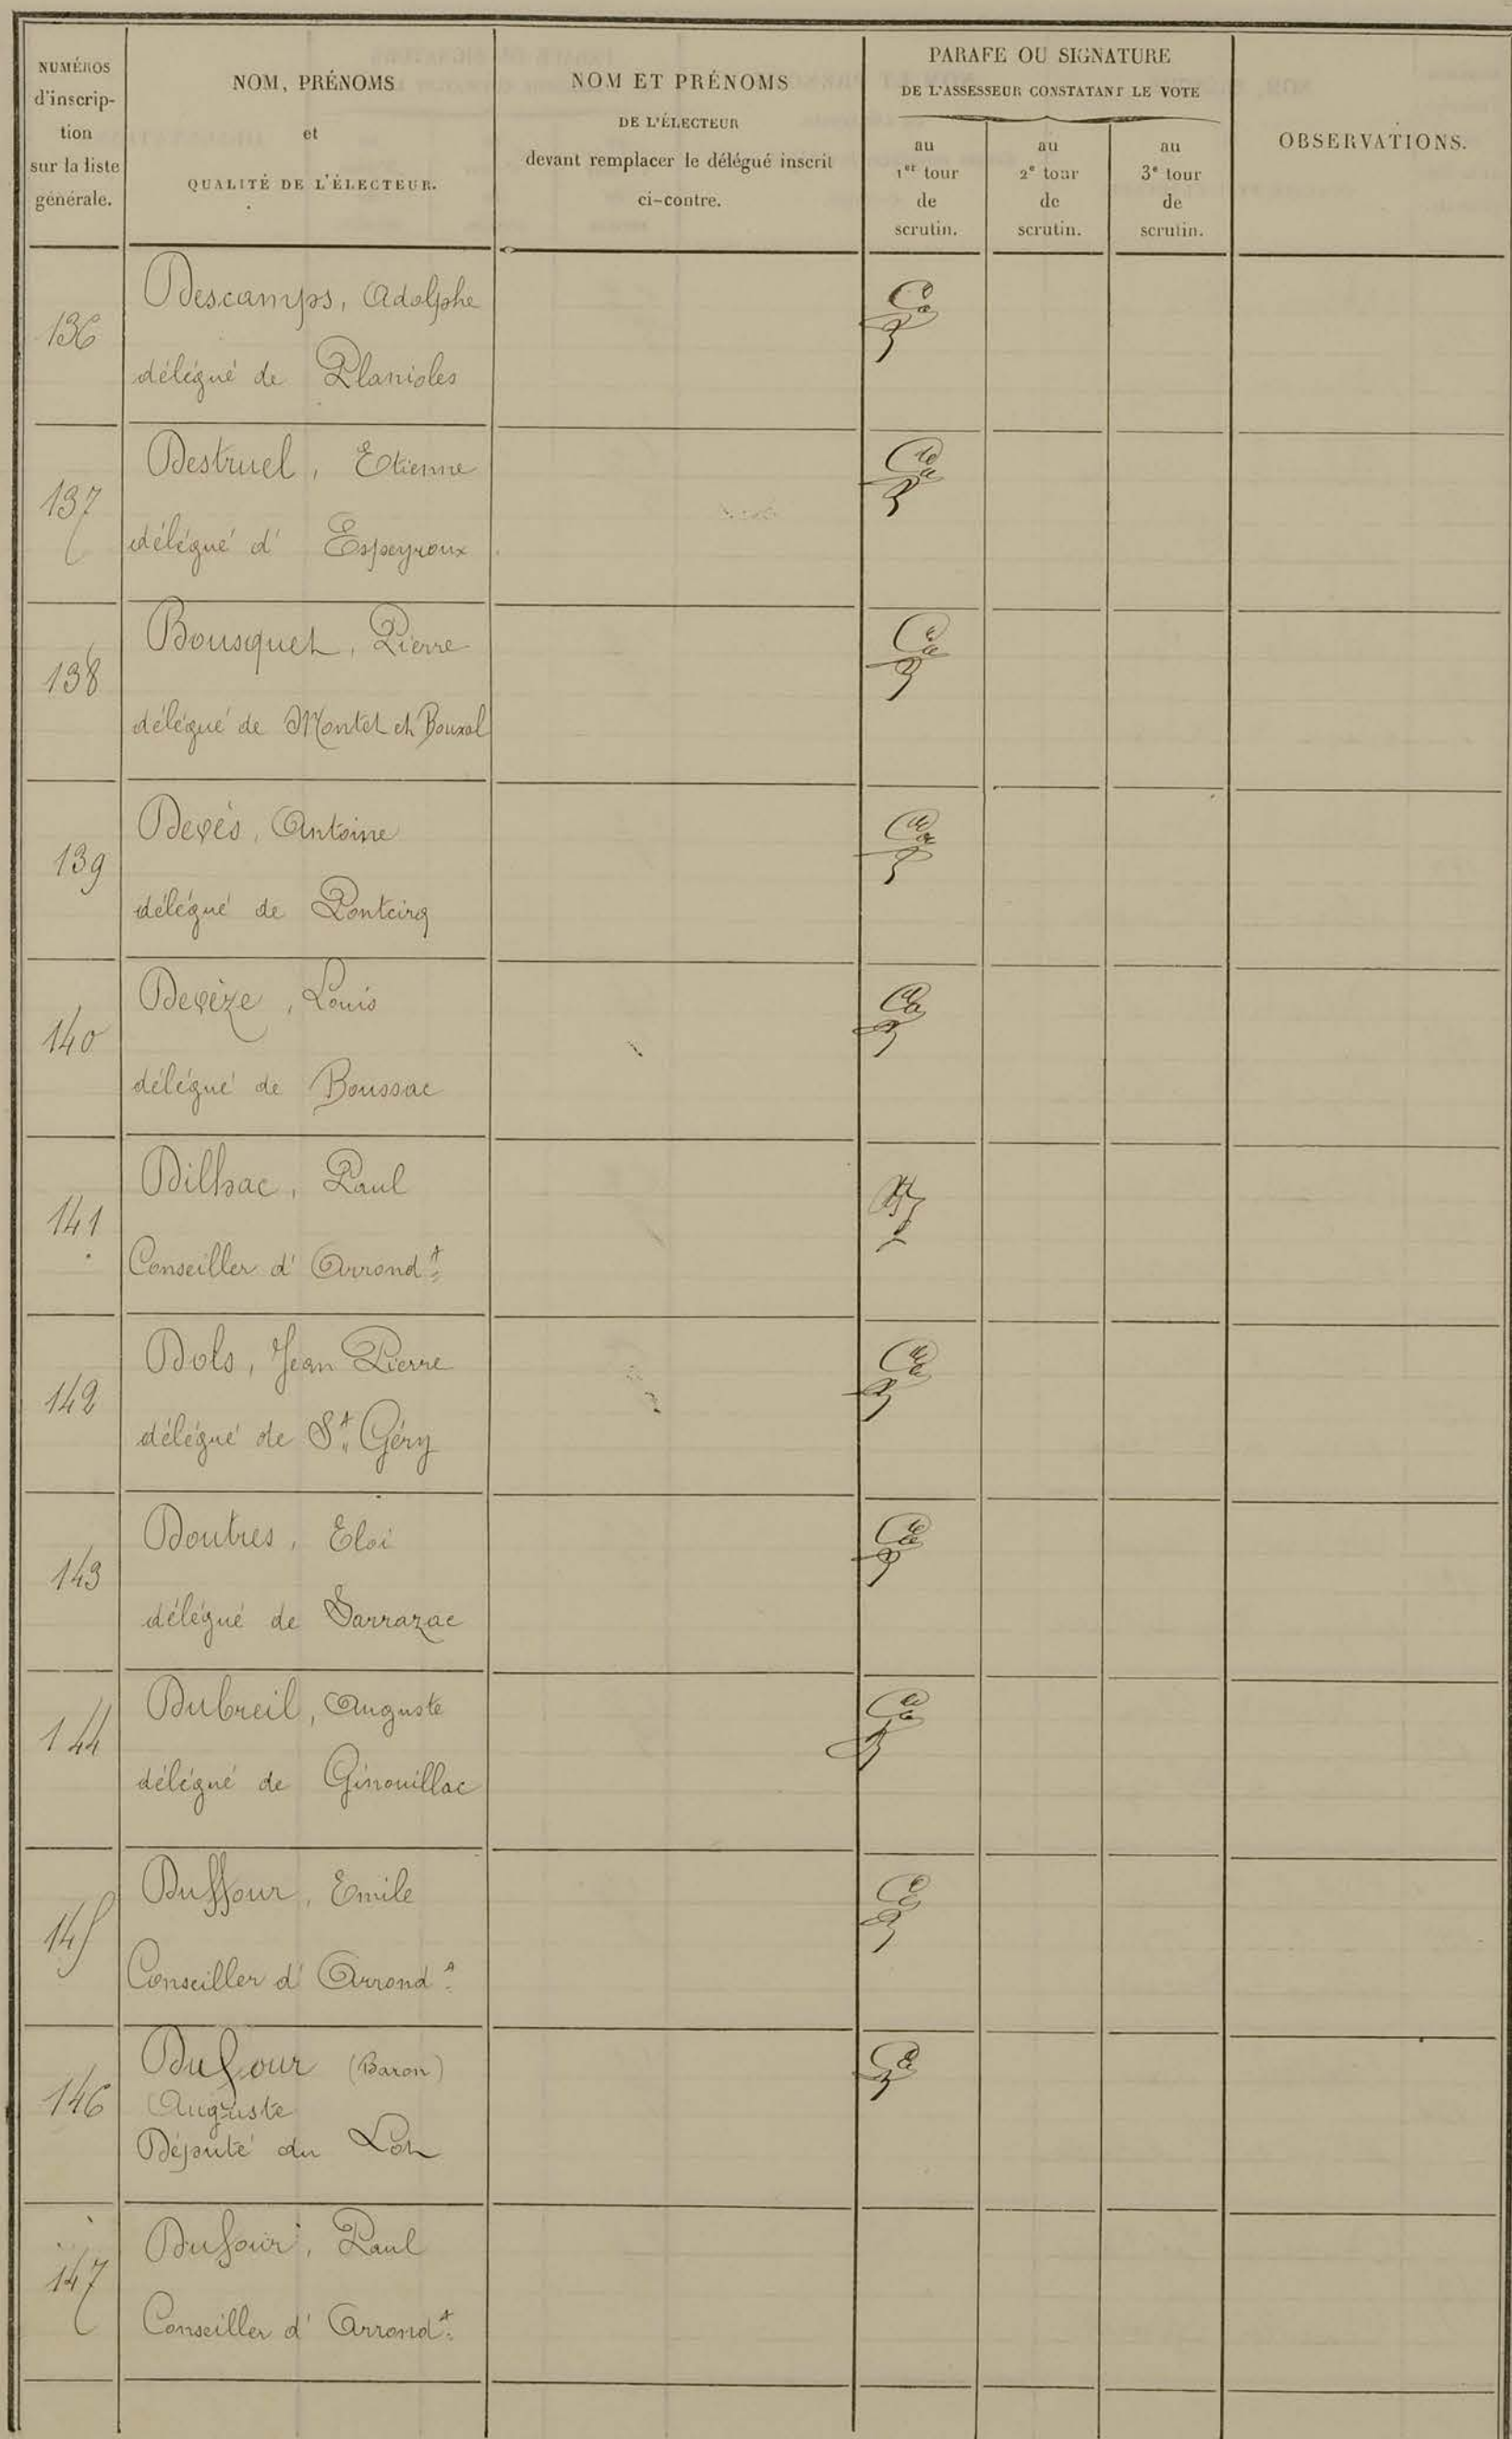 NUMÉROS
d'inscrip-
tion
sur la liste
générale.
NOM, PRÉNOMS
et
QUALITÉ DE L'ÉLECTEUR.
NOM ET PRÉNOMS
DE L'ÉLECTEUR
devant remplacer le délégué inscrit
ci-contre.
PARAFE OU SIGNATURE
DE L'ASSESSEUR CONSTATANT LE VOTE
au
1er tour
de
scrutin.
au
2e tour
de
scrutin.
au
3e tour
de
scrutin.
OBSERVATIONS.
136
Descamps, Adolphe
délégué de Planioles
137
Destruel, Etienne
délégué d' Espeyroux
138
Bousquet, Pierre
délégué de Montet et Bouxal
139
Devès, Antoine
délégué de Pontcirq
140
Devèze, Louis
délégué de Boussac
141
Dilhac, Paul
Conseiller d' Arrondt
142
Dols, Jean Pierre
délégué de St Géry
143
Doutres, Eloi
délégué de Sarrazac
144
Dubreil, Auguste
délégué de Ginouillac
145
Duffour, Emile
Conseiller d' Arrondt
146
Dufour (Baron)
Auguste
Député du Lot
147
Dufour, Paul
Conseiller d' Arrondt